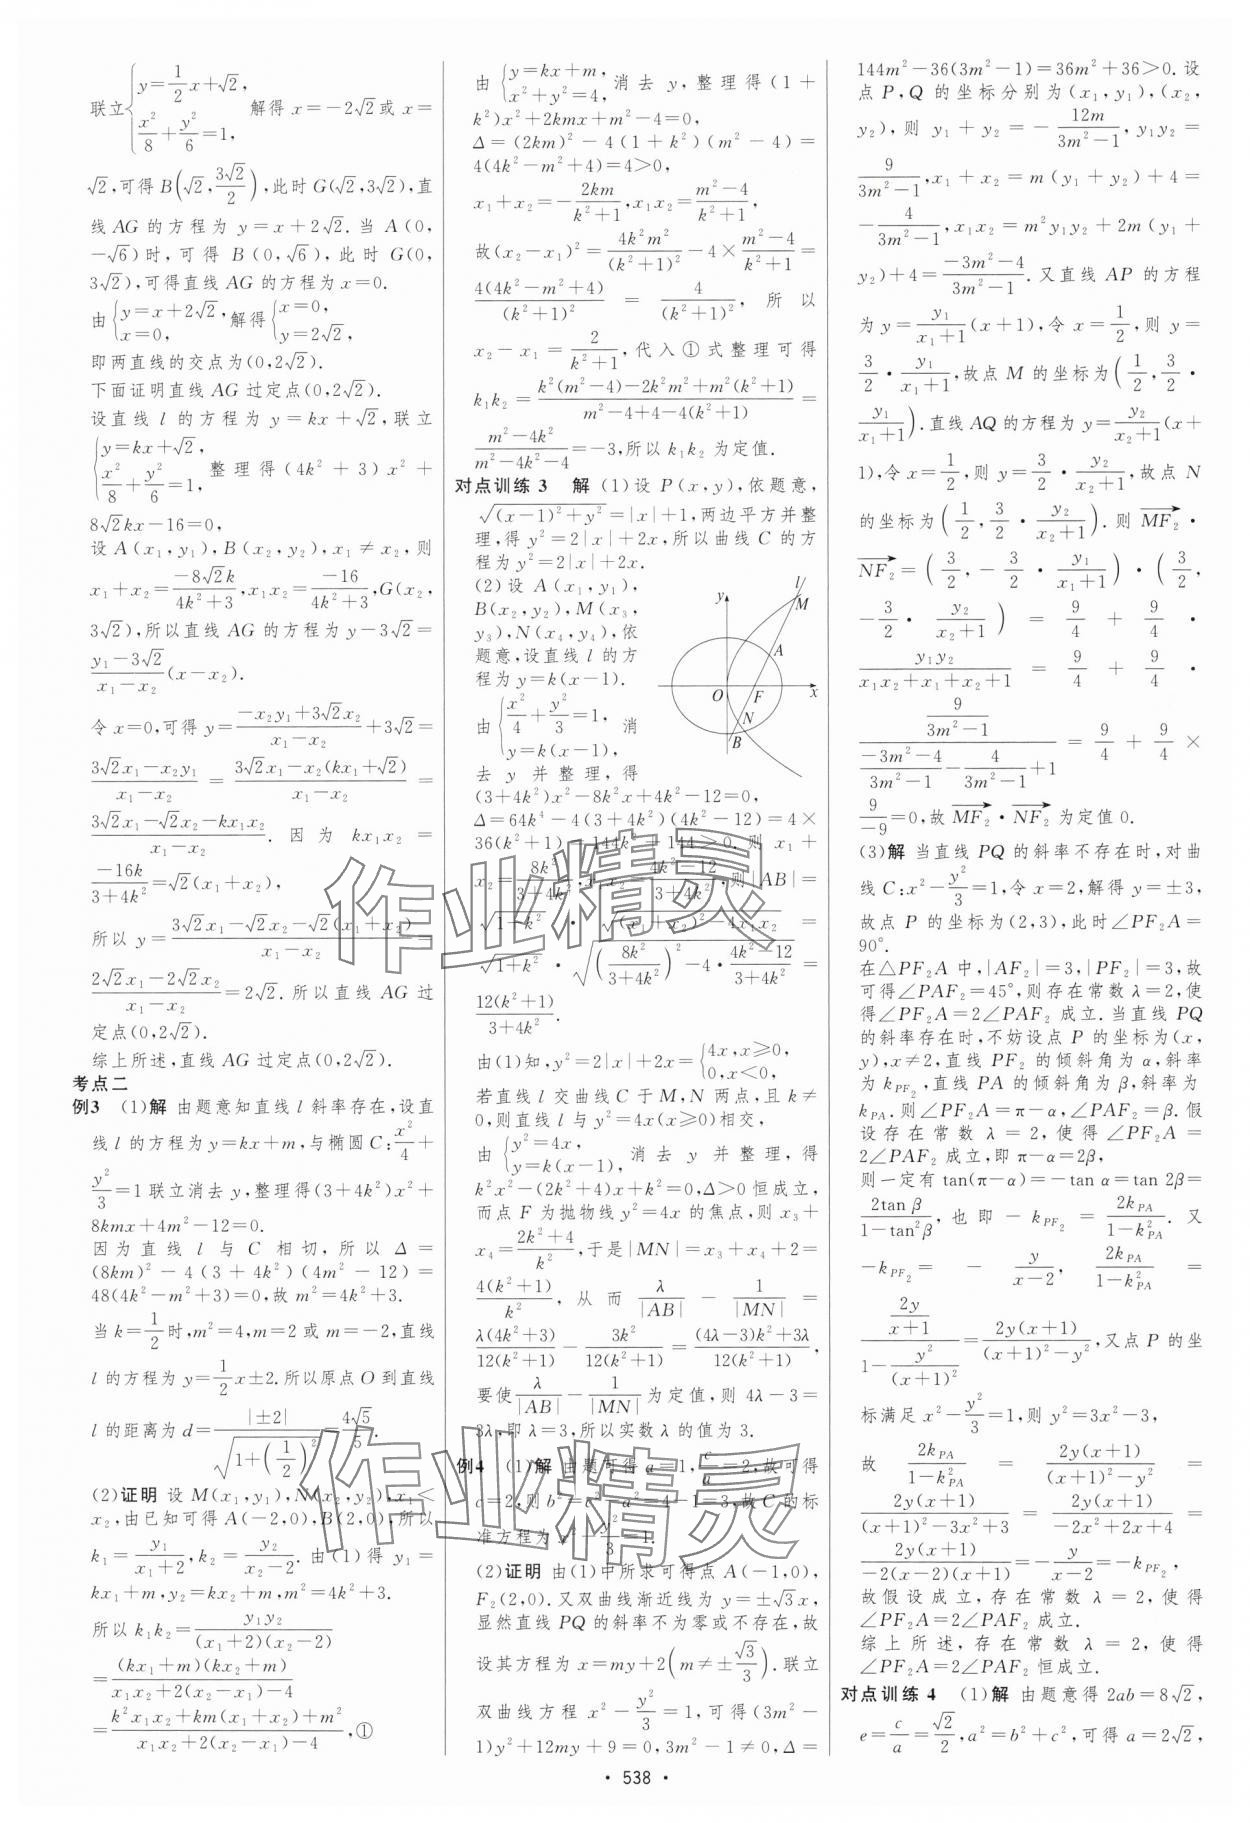 联立{y=1/2x+√2, x²/8+y²/6=1, 解得 x=-2√2或 x=
√2,可得B(√2,3√2/2),此时G(√2,3√2),直
线 AG 的方程为 y=x+2√2. 当 A(0,
-√6)时,可得 B(0,√6),此时 G(0,
3√2),可得直线 AG 的方程为 x=0.
由{y=x+2√2, x=0, 解得{x=0, y=2√2,
即两直线的交点为(0,2√2).
下面证明直线 AG 过定点(0,2√2).
设直线 l 的方程为 y=kx+√2,联立
{y=kx+√2, x²/8+y²/6=1, 整理得(4k²+3)x²+
8√2kx-16=0,
设 A(x₁,y₁),B(x₂,y₂),x₁≠x₂,则
x₁+x₂=-8√2k/(4k²+3),x₁x₂=-16/(4k²+3),G(x₂,
3√2),所以直线 AG 的方程为 y-3√2=
(y₁-3√2)/(x₁-x₂)(x-x₂).
令 x=0,可得 y=(-x₂y₁+3√2x₂)/(x₁-x₂)+3√2=
(3√2x₁-x₂y₁)/(x₁-x₂)=(3√2x₁-x₂(kx₁+√2))/(x₁-x₂)=
(3√2x₁-√2x₂-kx₁x₂)/(x₁-x₂). 因为 kx₁x₂=
-16k/(3+4k²)=√2(x₁+x₂),
所以 y=(3√2x₁-√2x₂-√2(x₁+x₂))/(x₁-x₂)=
(2√2x₁-2√2x₂)/(x₁-x₂)=2√2. 所以直线 AG 过
定点(0,2√2).
综上所述,直线 AG 过定点(0,2√2).
考点二
例3 (1)解 由题意知直线 l 斜率存在,设直
线 l 的方程为 y=kx+m,与椭圆 C:x²/4+
y²/3=1联立消去 y,整理得(3+4k²)x²+
8kmx+4m²-12=0.
因为直线 l 与 C 相切,所以 Δ=
(8km)²-4(3+4k²)(4m²-12)=
48(4k²-m²+3)=0,故 m²=4k²+3.
当 k=1/2时,m²=4,m=2 或 m=-2,直线
l 的方程为 y=1/2x±2.所以原点 O 到直线
l 的距离为 d=|±2|/√(1+(1/2)²)=4√5/5.
(2)证明 设 M(x₁,y₁),N(x₂,y₂),x₁<
x₂,由已知可得 A(-2,0),B(2,0),所以
k₁=y₁/(x₁+2),k₂=y₂/(x₂-2). 由(1)得 y₁=
kx₁+m,y₂=kx₂+m,m²=4k²+3.
所以 k₁k₂=y₁y₂/((x₁+2)(x₂-2))
=(kx₁+m)(kx₂+m)/(x₁x₂+2(x₂-x₁)-4)
=(k²x₁x₂+km(x₁+x₂)+m²)/(x₁x₂+2(x₂-x₁)-4),①
由{y=kx+m, x²+y²=4, 消去 y,整理得(1+
k²)x²+2kmx+m²-4=0,
Δ=(2km)²-4(1+k²)(m²-4)=
4(4k²-m²+4)=4>0,
x₁+x₂=-2km/(k²+1),x₁x₂=(m²-4)/(k²+1),
故(x₂-x₁)²=4k²m²/(k²+1)²-4×(m²-4)/(k²+1)=
4(4k²-m²+4)/(k²+1)²=4/(k²+1)²,所以
x₂-x₁=2/(k²+1),代入①式整理可得
k₁k₂=(k²(m²-4)-2k²m²+m²(k²+1))/(m²-4+4-4(k²+1))=
(m²-4k²)/(m²-4k²-4)=-3,所以 k₁k₂ 为定值.
对点训练3 解 (1)设 P(x,y),依题意,
√((x-1)²+y²)=|x|+1,两边平方并整
理,得 y²=2|x|+2x,所以曲线 C 的方
程为 y²=2|x|+2x.
(2)设 A(x₁,y₁),
B(x₂,y₂),M(x₃,
y₃),N(x₄,y₄),依
题意,设直线 l 的方
程为 y=k(x-1).
y l M A O F x N B
由{x²/4+y²/3=1, y=k(x-1), 消
去 y 并整理,得
(3+4k²)x²-8k²x+4k²-12=0,
Δ=64k⁴-4(3+4k²)(4k²-12)=4×
36(k²+1)=144k²+144>0.则 x₁+
x₂=8k²/(3+4k²),x₁x₂=(4k²-12)/(3+4k²),则|AB|=
√(1+k²)·√((x₁+x₂)²-4x₁x₂)=
√(1+k²)·√((8k²/(3+4k²))²-4·(4k²-12)/(3+4k²))=
12(k²+1)/(3+4k²).
由(1)知,y²=2|x|+2x={4x,x≥0, 0,x<0,
若直线 l 交曲线 C 于 M,N 两点,且 k≠
0,则直线 l 与 y²=4x(x≥0)相交,
由{y²=4x, y=k(x-1), 消去 y 并整理,得
k²x²-(2k²+4)x+k²=0,Δ>0 恒成立,
而点 F 为抛物线 y²=4x 的焦点,则 x₃+
x₄=(2k²+4)/k²,于是|MN|=x₃+x₄+2=
4(k²+1)/k²,从而 λ/|AB|-1/|MN|=
λ(4k²+3)/12(k²+1)-3k²/12(k²+1)=((4λ-3)k²+3λ)/12(k²+1),
要使λ/|AB|-1/|MN|为定值,则 4λ-3=
3λ,即 λ=3,所以实数 λ 的值为 3.
例4 (1)解 由题可得 a=1,c/a=2,故可得
c=2,则 b²=c²-a²=4-1=3,故 C 的标
准方程为 x²-y²/3=1.
(2)证明 由(1)中所求可得点 A(-1,0),
F₂(2,0).又双曲线渐近线为 y=±√3x,
显然直线 PQ 的斜率不为零或不存在,故
设其方程为 x=my+2(m≠±√3/3).联立
双曲线方程 x²-y²/3=1,可得(3m²-
1)y²+12my+9=0,3m²-1≠0,Δ=
144m²-36(3m²-1)=36m²+36>0.设
点 P,Q 的坐标分别为(x₁,y₁),(x₂,
y₂),则 y₁+y₂=-12m/(3m²-1),y₁y₂=
9/(3m²-1),x₁+x₂=m(y₁+y₂)+4=
-4/(3m²-1),x₁x₂=m²y₁y₂+2m(y₁+
y₂)+4=(-3m²-4)/(3m²-1).又直线 AP 的方程
为 y=y₁/(x₁+1)(x+1),令 x=1/2,则 y=
3/2·y₁/(x₁+1),故点 M 的坐标为(1/2,3/2·
y₁/(x₁+1)).直线 AQ 的方程为 y=y₂/(x₂+1)(x+
1),令 x=1/2,则 y=3/2·y₂/(x₂+1),故点 N
的坐标为(1/2,3/2·y₂/(x₂+1)).则 MF₂→·
NF₂→=(3/2,-3/2·y₁/(x₁+1))·(3/2,
-3/2·y₂/(x₂+1))=9/4+9/4·
y₁y₂/(x₁x₂+x₁+x₂+1)=9/4+9/4·
(9/(3m²-1))/((-3m²-4)/(3m²-1)-4/(3m²-1)+1)=9/4+9/4×
9/-9=0,故 MF₂→·NF₂→ 为定值 0.
(3)解 当直线 PQ 的斜率不存在时,对曲
线 C:x²-y²/3=1,令 x=2,解得 y=±3,
故点 P 的坐标为(2,3),此时∠PF₂A=
90°.
在△PF₂A 中,|AF₂|=3,|PF₂|=3,故
可得∠PAF₂=45°,则存在常数 λ=2,使
得∠PF₂A=2∠PAF₂ 成立.当直线 PQ
的斜率存在时,不妨设点 P 的坐标为(x,
y),x≠2,直线 PF₂ 的倾斜角为 α,斜率
为 k_PF₂,直线 PA 的倾斜角为 β,斜率为
k_PA.则∠PF₂A=π-α,∠PAF₂=β.假
设存在常数 λ=2,使得∠PF₂A=
2∠PAF₂ 成立,即 π-α=2β,
则一定有 tan(π-α)=-tan α=tan 2β=
2tan β/(1-tan²β),也即-k_PF₂=2k_PA/(1-k²_PA). 又
-k_PF₂=-y/(x-2),2k_PA/(1-k²_PA)=
(2y/(x+1))/(1-y²/(x+1)²)=2y(x+1)/((x+1)²-y²),又点 P 的坐
标满足 x²-y²/3=1,则 y²=3x²-3,
故 2k_PA/(1-k²_PA)=2y(x+1)/((x+1)²-y²)=
2y(x+1)/((x+1)²-3x²+3)=2y(x+1)/(-2x²+2x+4)=
2y(x+1)/(-2(x-2)(x+1))=-y/(x-2)=-k_PF₂,
故假设成立,存在常数 λ=2,使得
∠PF₂A=2∠PAF₂ 成立.
综上所述,存在常数 λ=2,使得
∠PF₂A=2∠PAF₂ 恒成立.
对点训练4 (1)解 由题意得 2ab=8√2,
e=c/a=√2/2,a²=b²+c²,可得 a=2√2,
·538·
作业精灵
作业精灵